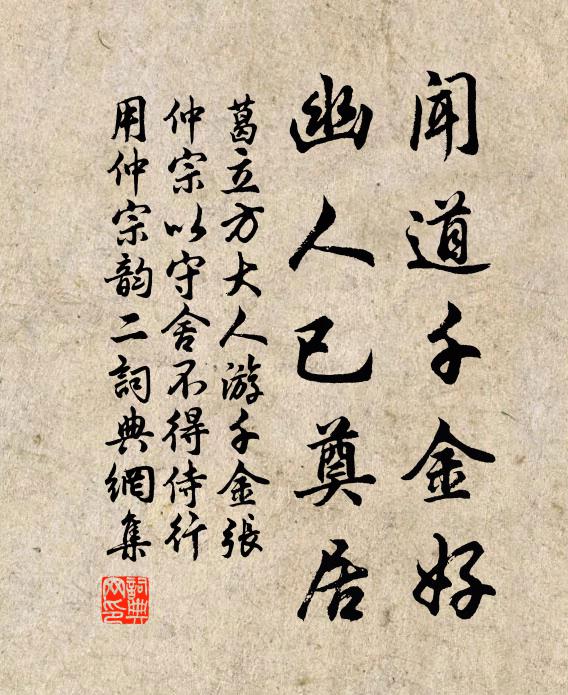 闻道千金好
幽人已奠居
葛立方大人游千金張
仲宗以守舍不得侍行
用仲宗韵二詞典網集
詞典网印